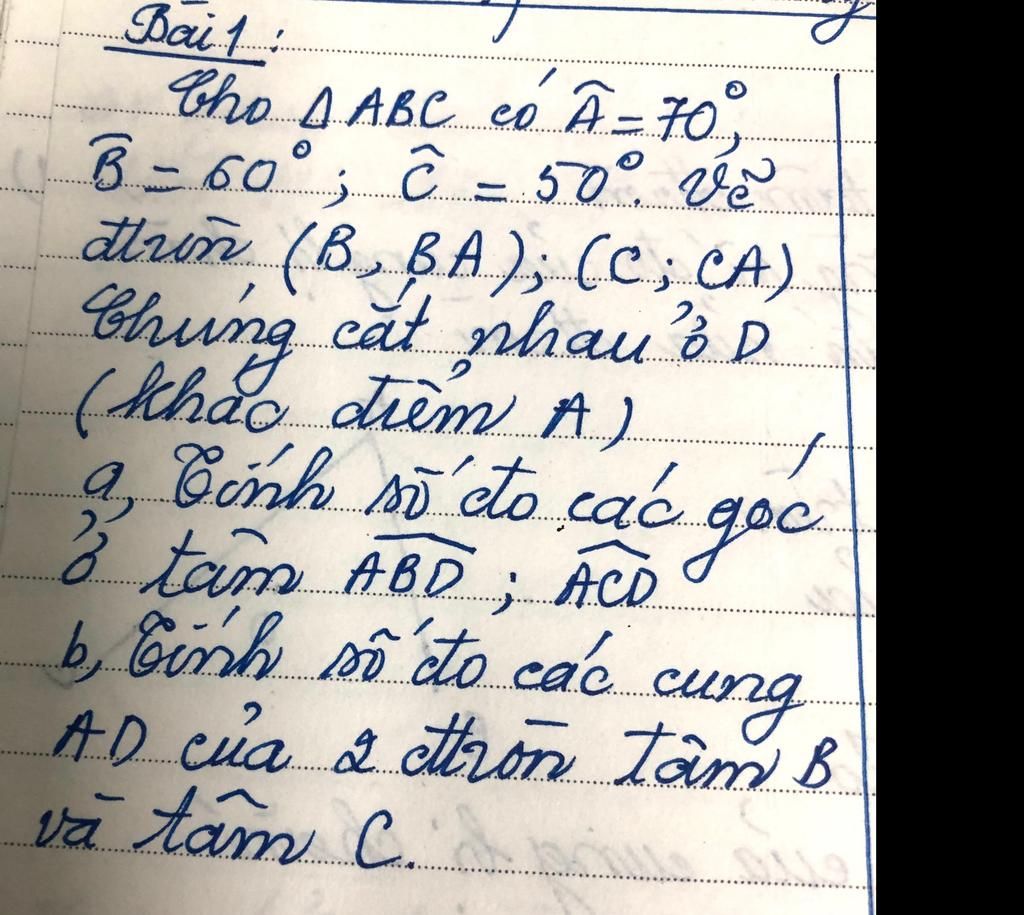 Bài 1 :
Cho Δ ABC có Â = 70°,
B̂ = 60° ; Ĉ = 50°. Vẽ
đtròn (B, BA); (C; CA)
Chúng cắt nhau ở D
(khác điểm A)
a, Tính số đo các góc
ở tâm ABD ; ACD
b, Tính số đo các cung
AD của 2 đtròn tâm B
và tâm C.